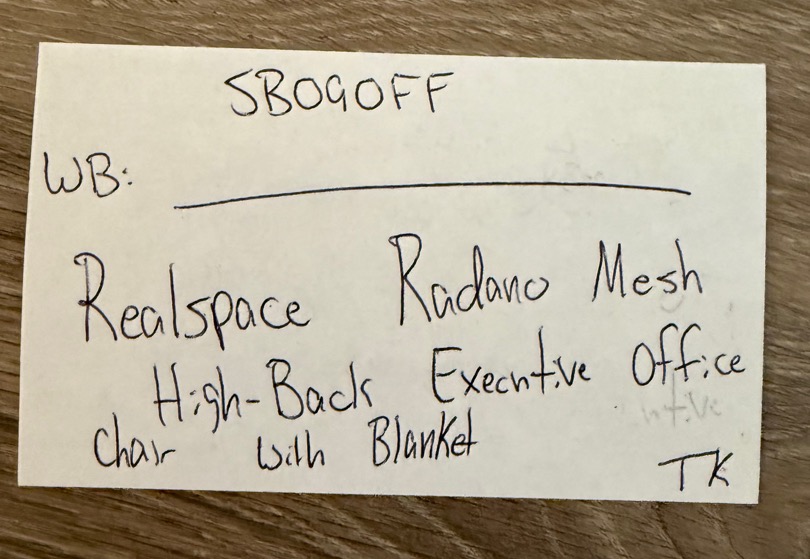 SBOGOFF
WB:
Realspace Radano Mesh
High-Back Executive Office
Chair with Blanket
TK